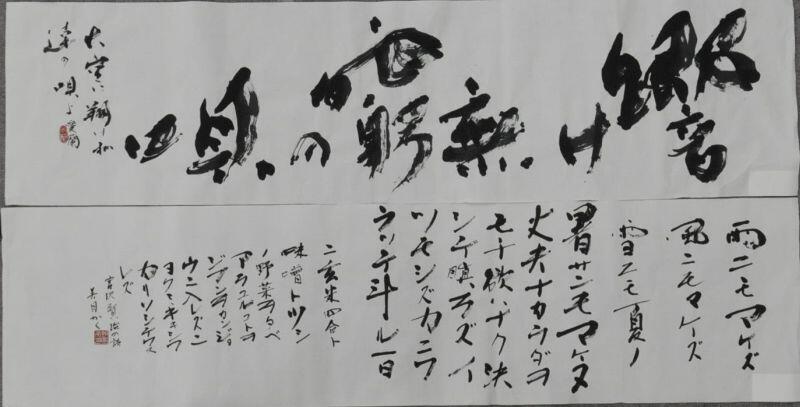 響
け
無
窮
の
唄
大空に翔け私
達の唄よ
雨ニモマケズ
風ニモマケズ
雪ニモ夏ノ
暑サニモマケヌ
丈夫ナカラダヲ
モチ欲ハナク決
シテ瞋ラズイ
ツモシズカニワ
ラッテヰル一日
ニ玄米四合ト
味噌ト少シ
ノ野菜ヲタベ
アラユルコトヲ
ジブンヲカンジョ
ウニ入レズニ
ヨクミキキシワ
カリソシテワス
レズ
宮沢賢治の詩
美月かく